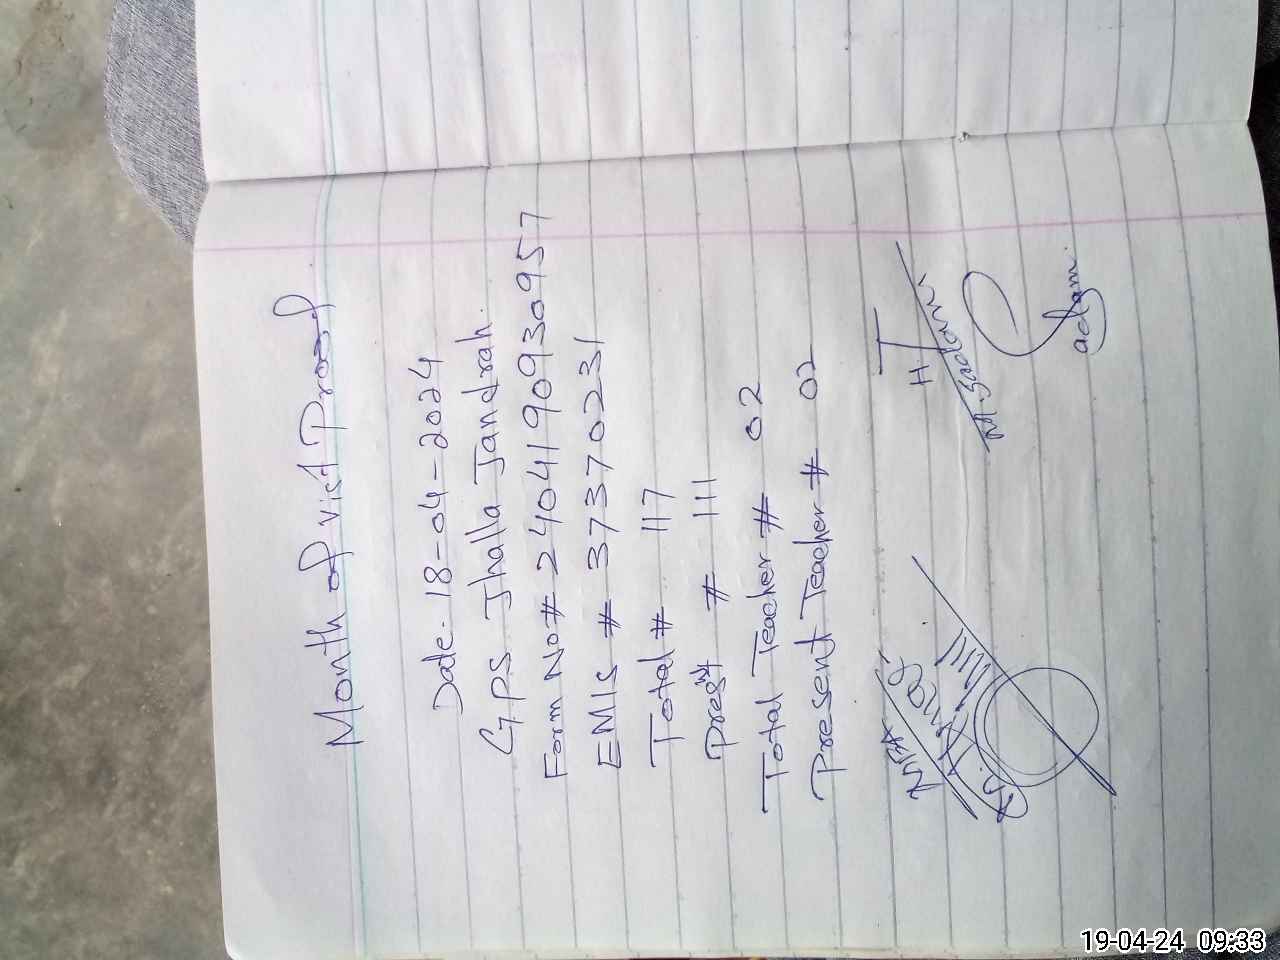 Month of visit Proof
Date-18-04-2024
GPS Jhalla Jandrah.
Form No# 2404190930957
EMIS # 37370231
Total # 117
Present # 111
Total Teacher # 02
Present Teacher # 02
HT
M.Saddam
Sadam
19-04-24 09:33